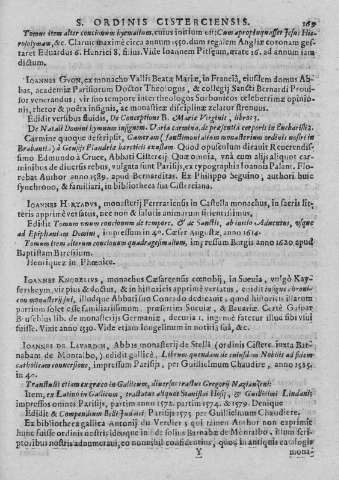 S. ORDINIS CISTERCIENSIS. 169
Tomus item alter concionum hyemalium, cuius initium est: Cum appropinquasset Jesus Hie-
rosolymam, &c. Claruit maximè circa annum 1550. dum regalem Angliæ coronam ges-
taret Eduardus 6. Henrici 8. filius. Vide Ioannem Pitseum, ætate 16. ad annum iam
dictum.
IOANNES GVON, ex monacho Vallis Beatæ Mariæ, in Franciâ, eiusdem domus Ab-
bas, academiæ Parisiorum Doctor Theologus, & collegij Sancti Bernardi Proui-
sor venerandus; vir suo tempore inter theologos Sorbonicos celeberrimæ opinio-
nis, rhetor & poëta insignis, ac monasticæ disciplinæ zelator strenuus.
Edidit versibus fluidis, De Conceptione B. Mariæ Virginis, libros 3.
De Natali Domini hymnum insignem. Varia carmina, de præsentia corporis in Eucharistia.
Carmine quoque descripsit, Cameram (sanctimonialium monasterium ordinis nostri in
Brabantia) à Geusijs Flandriæ hæreticis exustam. Quod opusculum direxit Reuerendissi-
mo Edmundo à Cruce, Abbati Cistercij. Quæ omnia, vnà cum alijs aliquot car-
minibus de diuersis rebus, vulgata sunt Parisijs, ex typographia Ioannis Palani. Flo-
rebat Author anno 1589. apud Bernarditas. Ex Philippo Seguino, authori huic
synchrono, & familiari, in bibliotheca sua Cisterciana.
IOANNES HVRTADVS, monasterij Ferrariensis in Castella monachus, in sacris lit-
teris apprimè versatus, nec non & salutis animarum sitientissimus.
Edidit Tomum vnum concionum de tempore, & de Sanctis, ab initio Aduentus, vsque
ad Epiphaniam Domini, impressum in 4o. Cæsar Augustæ, anno 1614.
Tomum item alterum concionum quadragesimalium, impressum Burgis anno 1620 apud
Baptistam Varesium.
Henriquez in Phœnice.
IOANNES KNOBELIVS, monachus Cæsariensis cœnobij, in Sueuia, vulgò Kay-
sersheym, vir pius & doctus, & in historiis apprimè versatus,
com monasterij sui, illudque Abbati suo Conrado dedicauit, quod historicis illarum
partium solet esse familiarissimum, præsertim Sueuiæ, & Bauariæ. Certè Gaspar
Bruschius lib. de monasterijs Germaniæ, decuria 1. ingenuè fatetur illud sibi vsui
fuisse. Vixit anno 1530. Vide etiam longissimum in notitia sua, &c.
IOANNES DE LAVARDIN, Abbas monasterij de Stella (ordinis Cisterc. iuxta Bar-
nabam de Montalbo,) edidit gallicè, Librum quendam de cuiusdam Nobilis ad fidem
catholicam conuersione, impressum Parisijs, per Guillielmum Chaudiere, anno 1585.
in 4o.
Transtulit etiam ex græco in Gallicum, diuersos tractus Gregorij Nazianzeni.
Item, ex Latino in Gallicum, tractatus aliquot Stanislai Hosij, & Guilielmi Lindani
impressos omnes Parisijs, partim anno 1572. partim 1574. & 1579. Denique
Edidit & Compendium Belli Judaici Parisijs 1575. per Guillielmum Chaudiere.
Ex bibliotheca gallica Antonij du Verdier; quod si non rineat Author non exprimat
hunc fuisse ordinis nostri, ideoque in fide solius Barnabæ de Montalbo, illum scri-
ptoribus nostris adnumeraui, eo nonnihil confidentius, quòd in antiquis catalogis
Y mona-